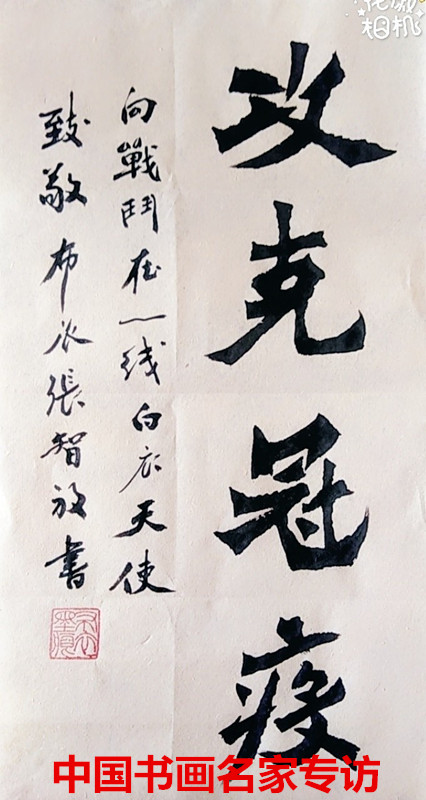 攻克冠疫
向戰鬥在一线白衣天使
致敬布衣張智放書
相机
中国书画名家专访